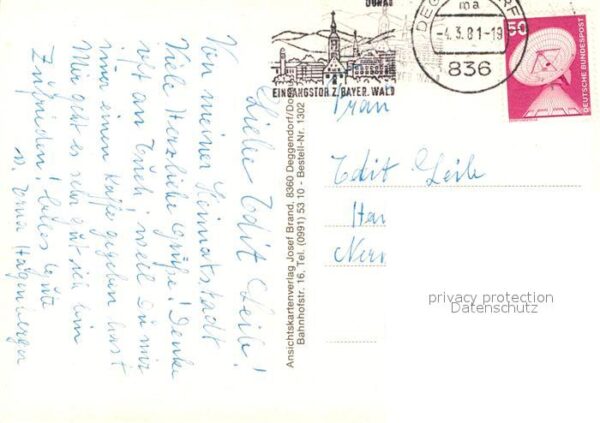 Liebe Edit Leile!
Von meiner Heimatstadt
Viele Herzliche Grüße! Denke
oft an Euch, weil Du mir
immer einen Kaffe gegeben hast
Mir geht es sehr gut ich bin
Zufrieden! Alles Gute
v. Erna Hagenberger
Ansichtskartenverlag Josef Brand, 8360 Deggendorf/Do
Bahnhofstr. 16, Tel. (0991) 53 10 - Bestell-Nr. 1302
DONAU
EINGANGSTOR Z. BAYER. WALD
DEGGENDORF
ma
-4.3.81-19
836
50
DEUTSCHE BUNDESPOST
Frau
Edit Leile
privacy protection
Datenschutz